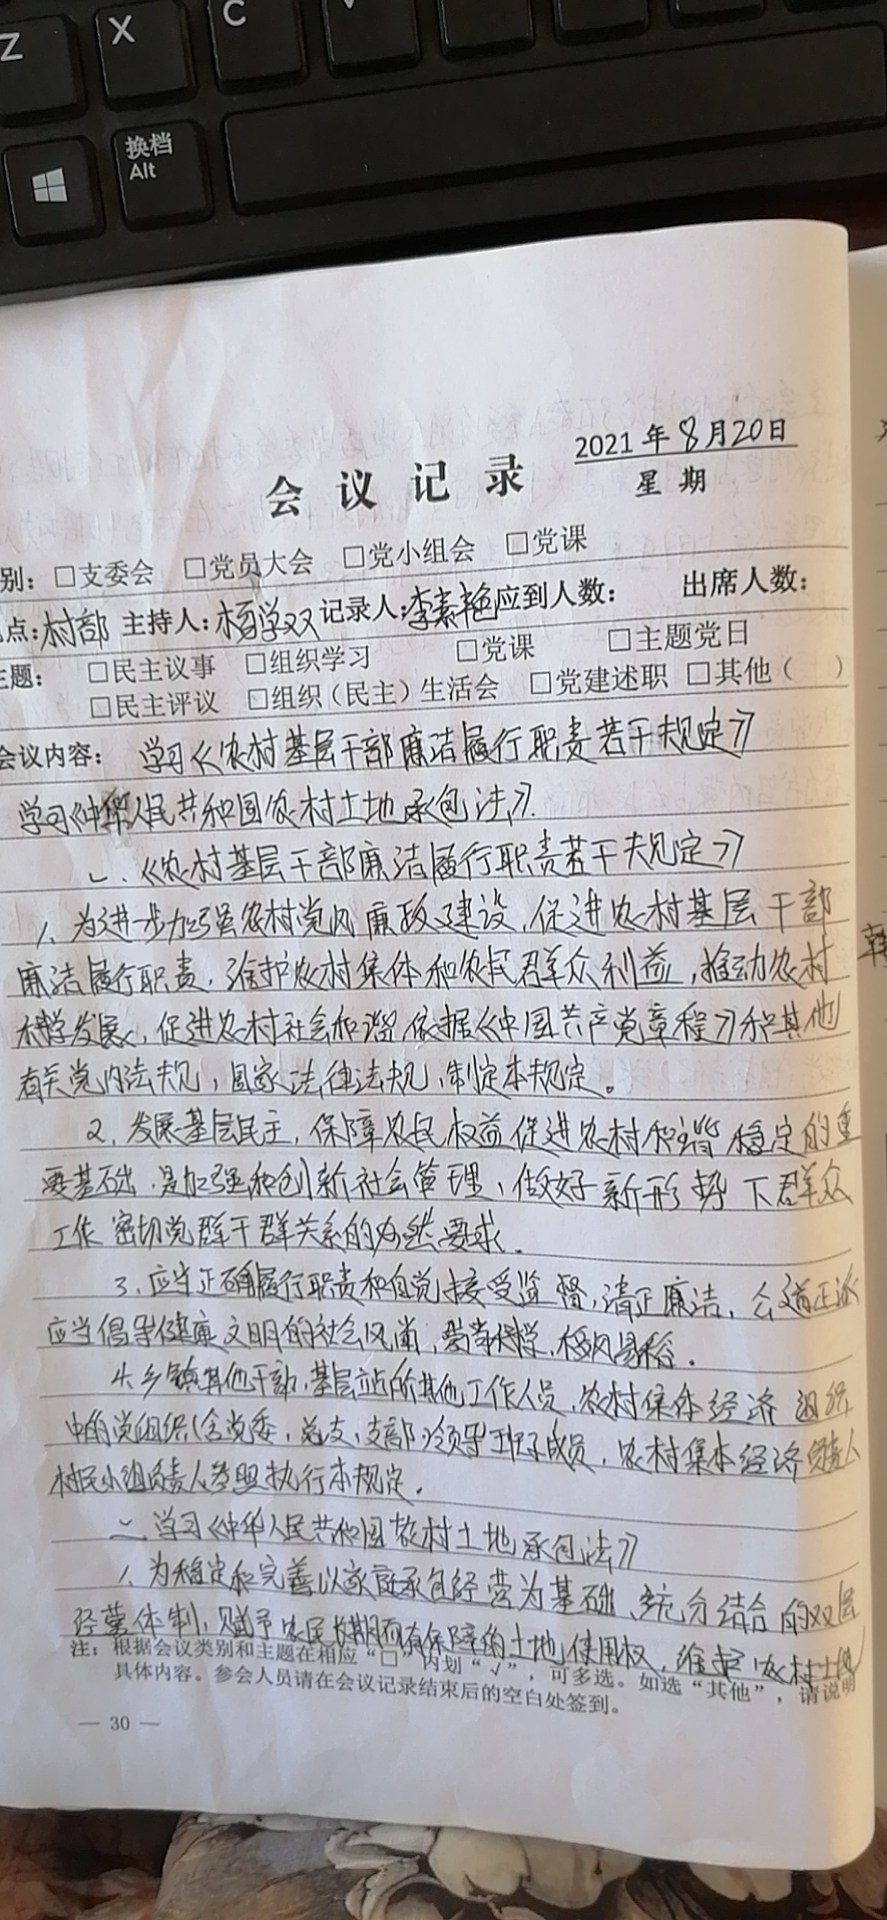 Z X C V
换档
Alt
2021年8月20日
会议记录
星期
别：□支委会 □党员大会 □党小组会 □党课
点：村部 主持人：杨学双 记录人：李素艳 应到人数： 出席人数：
主题： □民主议事 □组织学习 □党课 □主题党日
□民主评议 □组织（民主）生活会 □党建述职 □其他（ ）
会议内容： 学习《农村基层干部廉洁履行职责若干规定》
学习《中华人民共和国农村土地承包法》.
一、《农村基层干部廉洁履行职责若干规定》
1、为进一步加强农村党风廉政建设，促进农村基层干部
廉洁履行职责，维护农村集体和农民群众利益，推动农村
科学发展，促进农村社会和谐，依据《中国共产党章程》和其他
有关党内法规，国家法律法规，制定本规定。
2、发展基层民主，保障农民权益促进农村和谐稳定的重
要基础，是加强和创新社会管理，做好新形势下群众
工作密切党群干群关系的必然要求.
3、应当正确履行职责和自觉接受监督，清正廉洁，公道正派
应当倡导健康文明的社会风尚，崇尚科学，移风易俗.
4、乡镇其他干部，基层站所其他工作人员，农村集体经济组织
中的党组织（含党委，总支，支部）领导班子成员，农村集体经济负责人
村民小组负责人参照执行本规定.
二、学习《中华人民共和国农村土地承包法》
1、为稳定和完善以家庭承包经营为基础、统分结合的双层
经营体制，赋予农民长期而有保障的土地使用权，维护农村土地
注：根据会议类别和主题在相应“□”内划“√”，可多选。如选“其他”，请说明
具体内容。参会人员请在会议记录结束后的空白处签到。
— 30 —